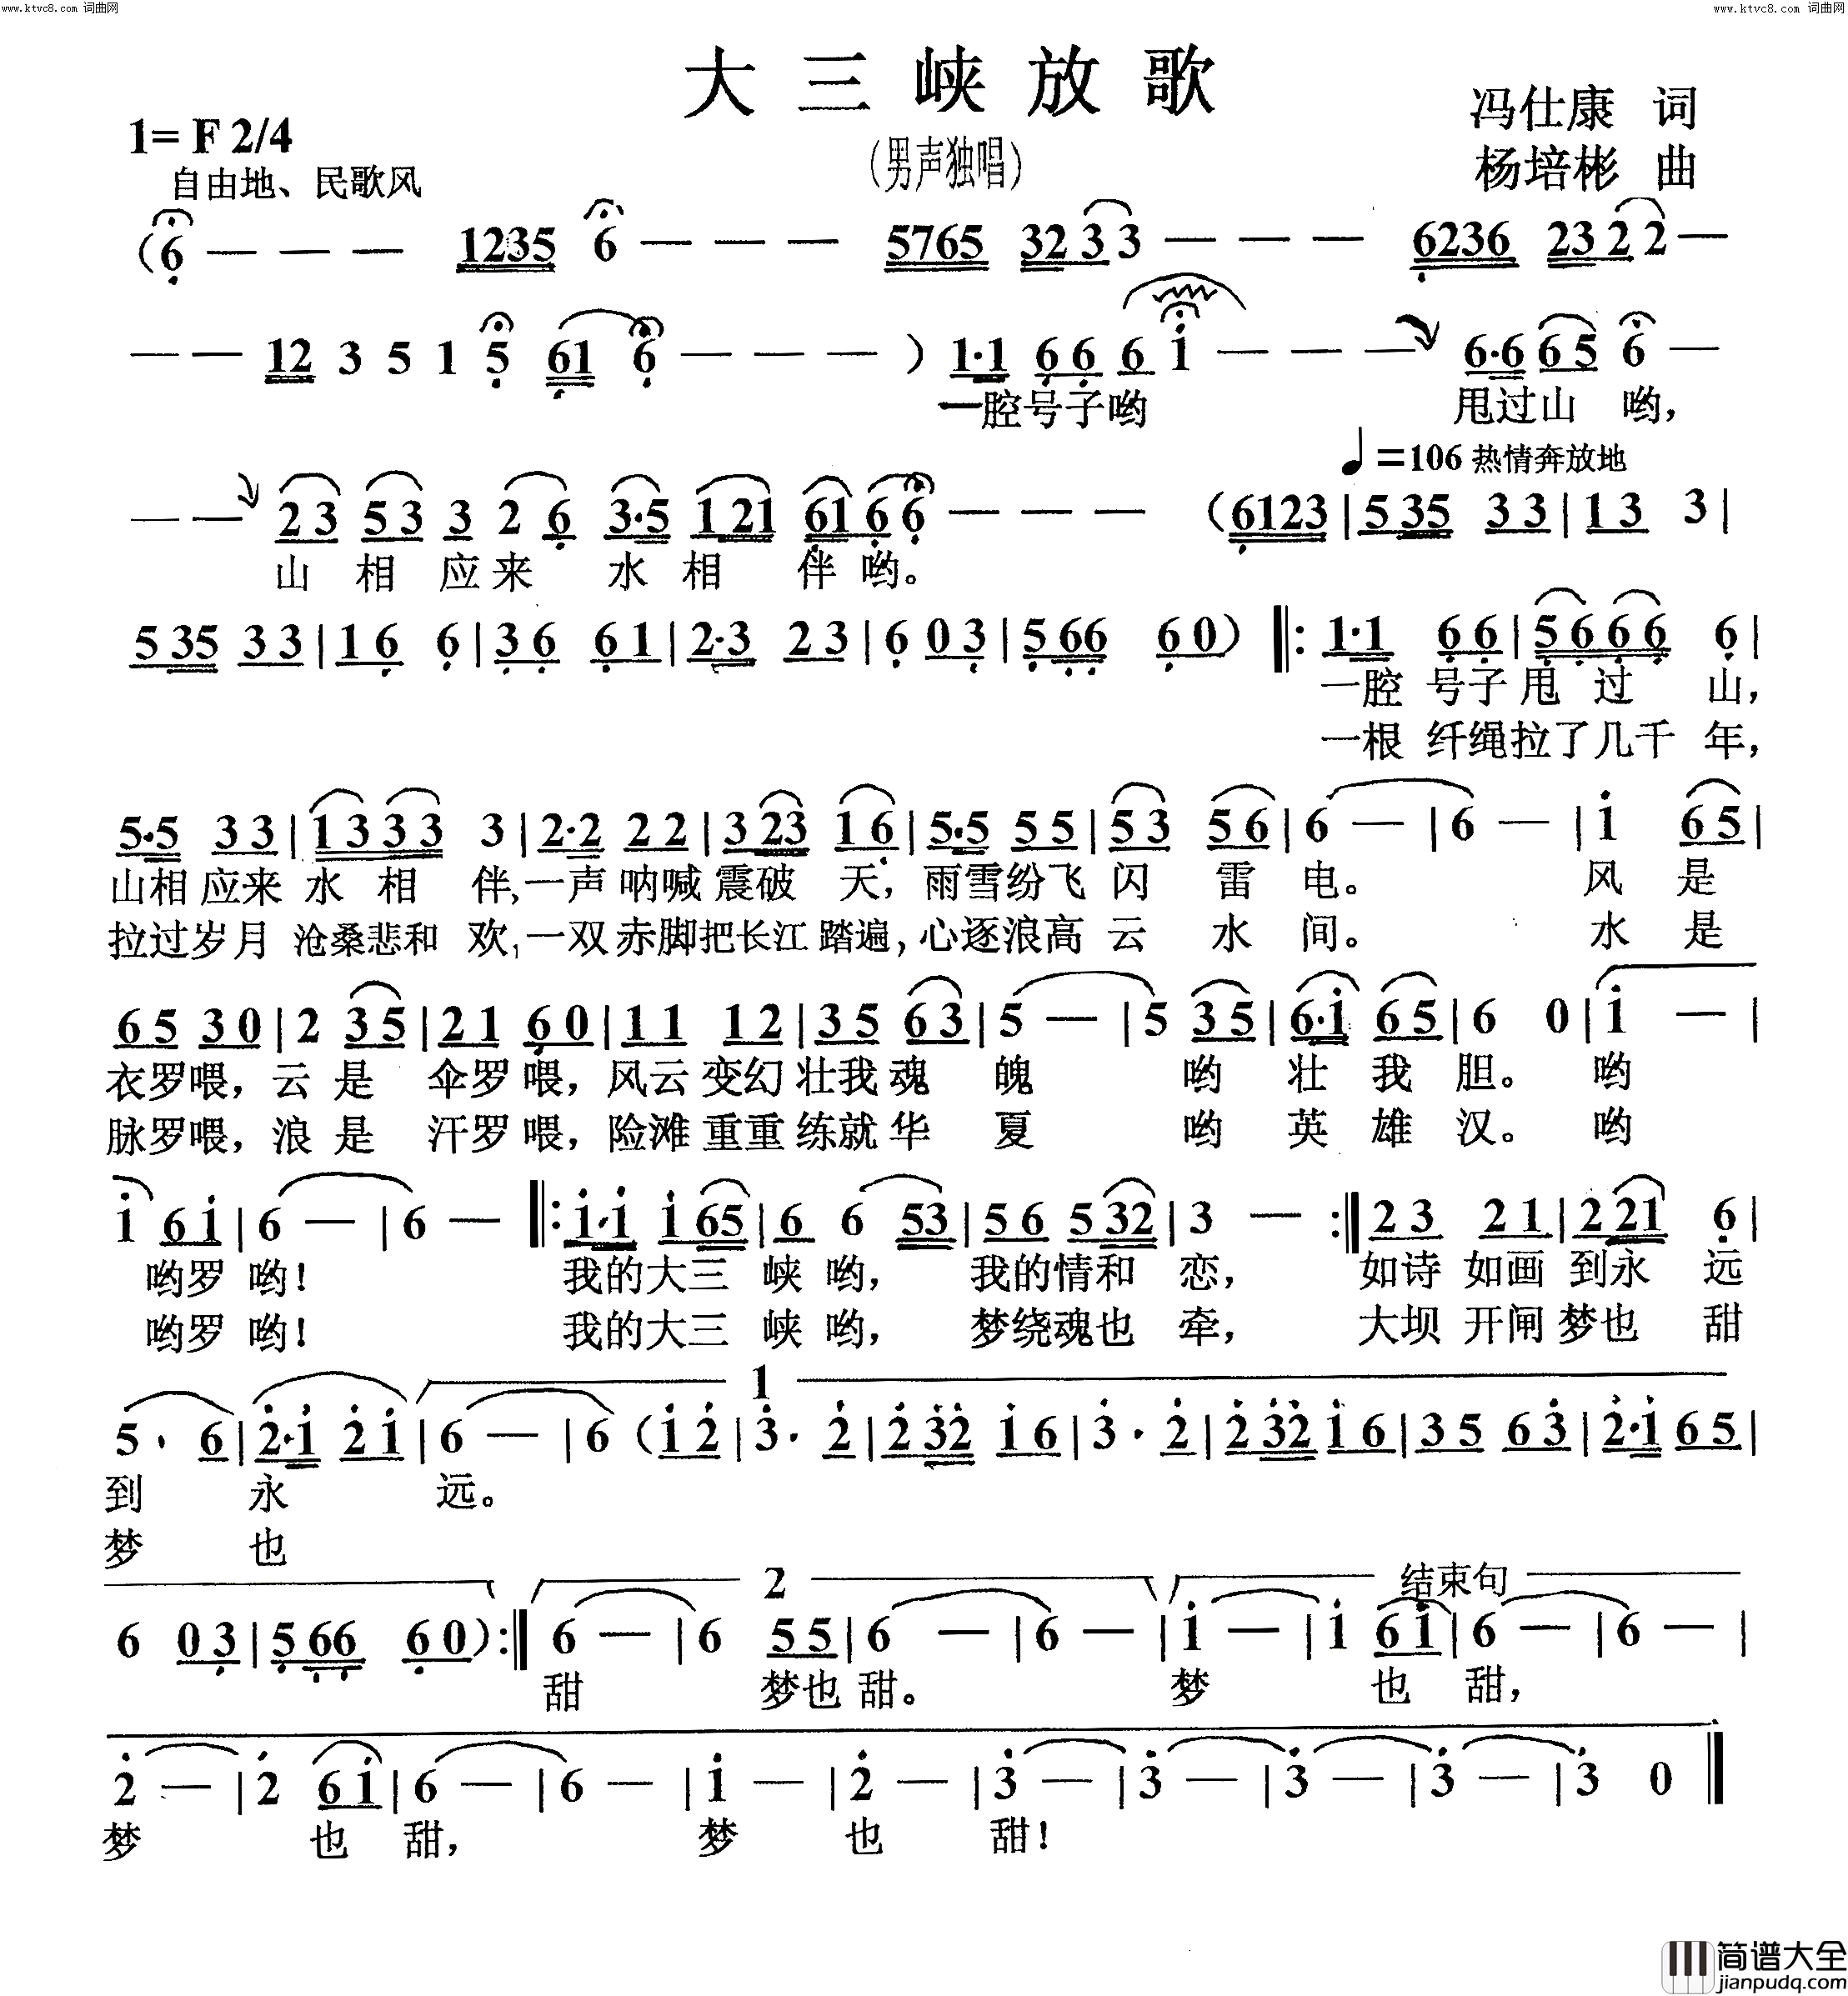 www.ktvc8.com 词曲网
www.ktvc8.com 词曲网
大三峡放歌
(男声独唱)
冯仕康 词
杨培彬 曲
1= F 2/4
自由地、民歌风
(6 — — — 1235 6 — — — 5765 3233 — — — 6236 2322 —
— — 12 3 5 1 5 61 6 — — — ) 1·1 6 6 6 1 — — — 6·6 6 5 6 —
一腔号子哟 甩过山 哟,
♩=106 热情奔放地
— — 2 3 5 3 3 2 6 3·5 1 21 61 6 6 — — — (6123 | 5 35 3 3 | 1 3 3 |
山 相 应 来 水 相 伴 哟。
5 35 3 3 | 1 6 6 | 3 6 6 1 | 2·3 2 3 | 6 0 3 | 5 66 6 0 ) ‖: 1·1 6 6 | 5 6 6 6 6 |
一腔 号子 甩 过 山,
一根 纤绳拉了几千 年,
5·5 3 3 | 1 3 3 3 3 | 2·2 2 2 | 3 23 1 6 | 5·5 5 5 | 5 3 5 6 | 6 — | 6 — | 1 6 5 |
山相 应来 水 相 伴,一声 呐喊 震破 天,雨雪纷飞 闪 雷 电。 风 是
拉过岁月 沧桑悲和 欢,一双 赤脚把长江 踏遍,心逐浪高 云 水 间。 水 是
6 5 3 0 | 2 3 5 | 2 1 6 0 | 1 1 1 2 | 3 5 6 3 | 5 — | 5 3 5 | 6·1 6 5 | 6 0 | 1 — |
衣罗喂,云 是 伞罗 喂,风云 变幻 壮我 魂 魄 哟 壮 我 胆。 哟
脉罗喂,浪 是 汗罗 喂,险滩 重重 练就 华 夏 哟 英 雄 汉。 哟
1 6 1 | 6 — | 6 — ‖: 1·1 1 65 | 6 6 53 | 5 6 5 32 | 3 — :‖ 2 3 2 1 | 2 21 6 |
哟罗 哟! 我的大三 峡 哟, 我的情和 恋, 如诗 如画 到永 远
哟罗 哟! 我的大三 峡 哟, 梦绕魂也 牵, 大坝 开闸 梦也 甜
1
5 · 6 | 2·1 2 1 | 6 — | 6 (1 2 | 3 · 2 | 2 32 1 6 | 3 · 2 | 2 32 1 6 | 3 5 6 3 | 2·1 6 5 |
到 永 远。
梦 也
2 结束句
6 0 3 | 5 66 6 0 ) :‖ 6 — | 6 5 5 | 6 — | 6 — | 1 — | 1 6 1 | 6 — | 6 — |
甜 梦也 甜。 梦 也 甜,
2 — | 2 6 1 | 6 — | 6 — | 1 — | 2 — | 3 — | 3 — | 3 — | 3 — | 3 0 ‖
梦 也 甜, 梦 也 甜!
简谱大全
jianpudq.com